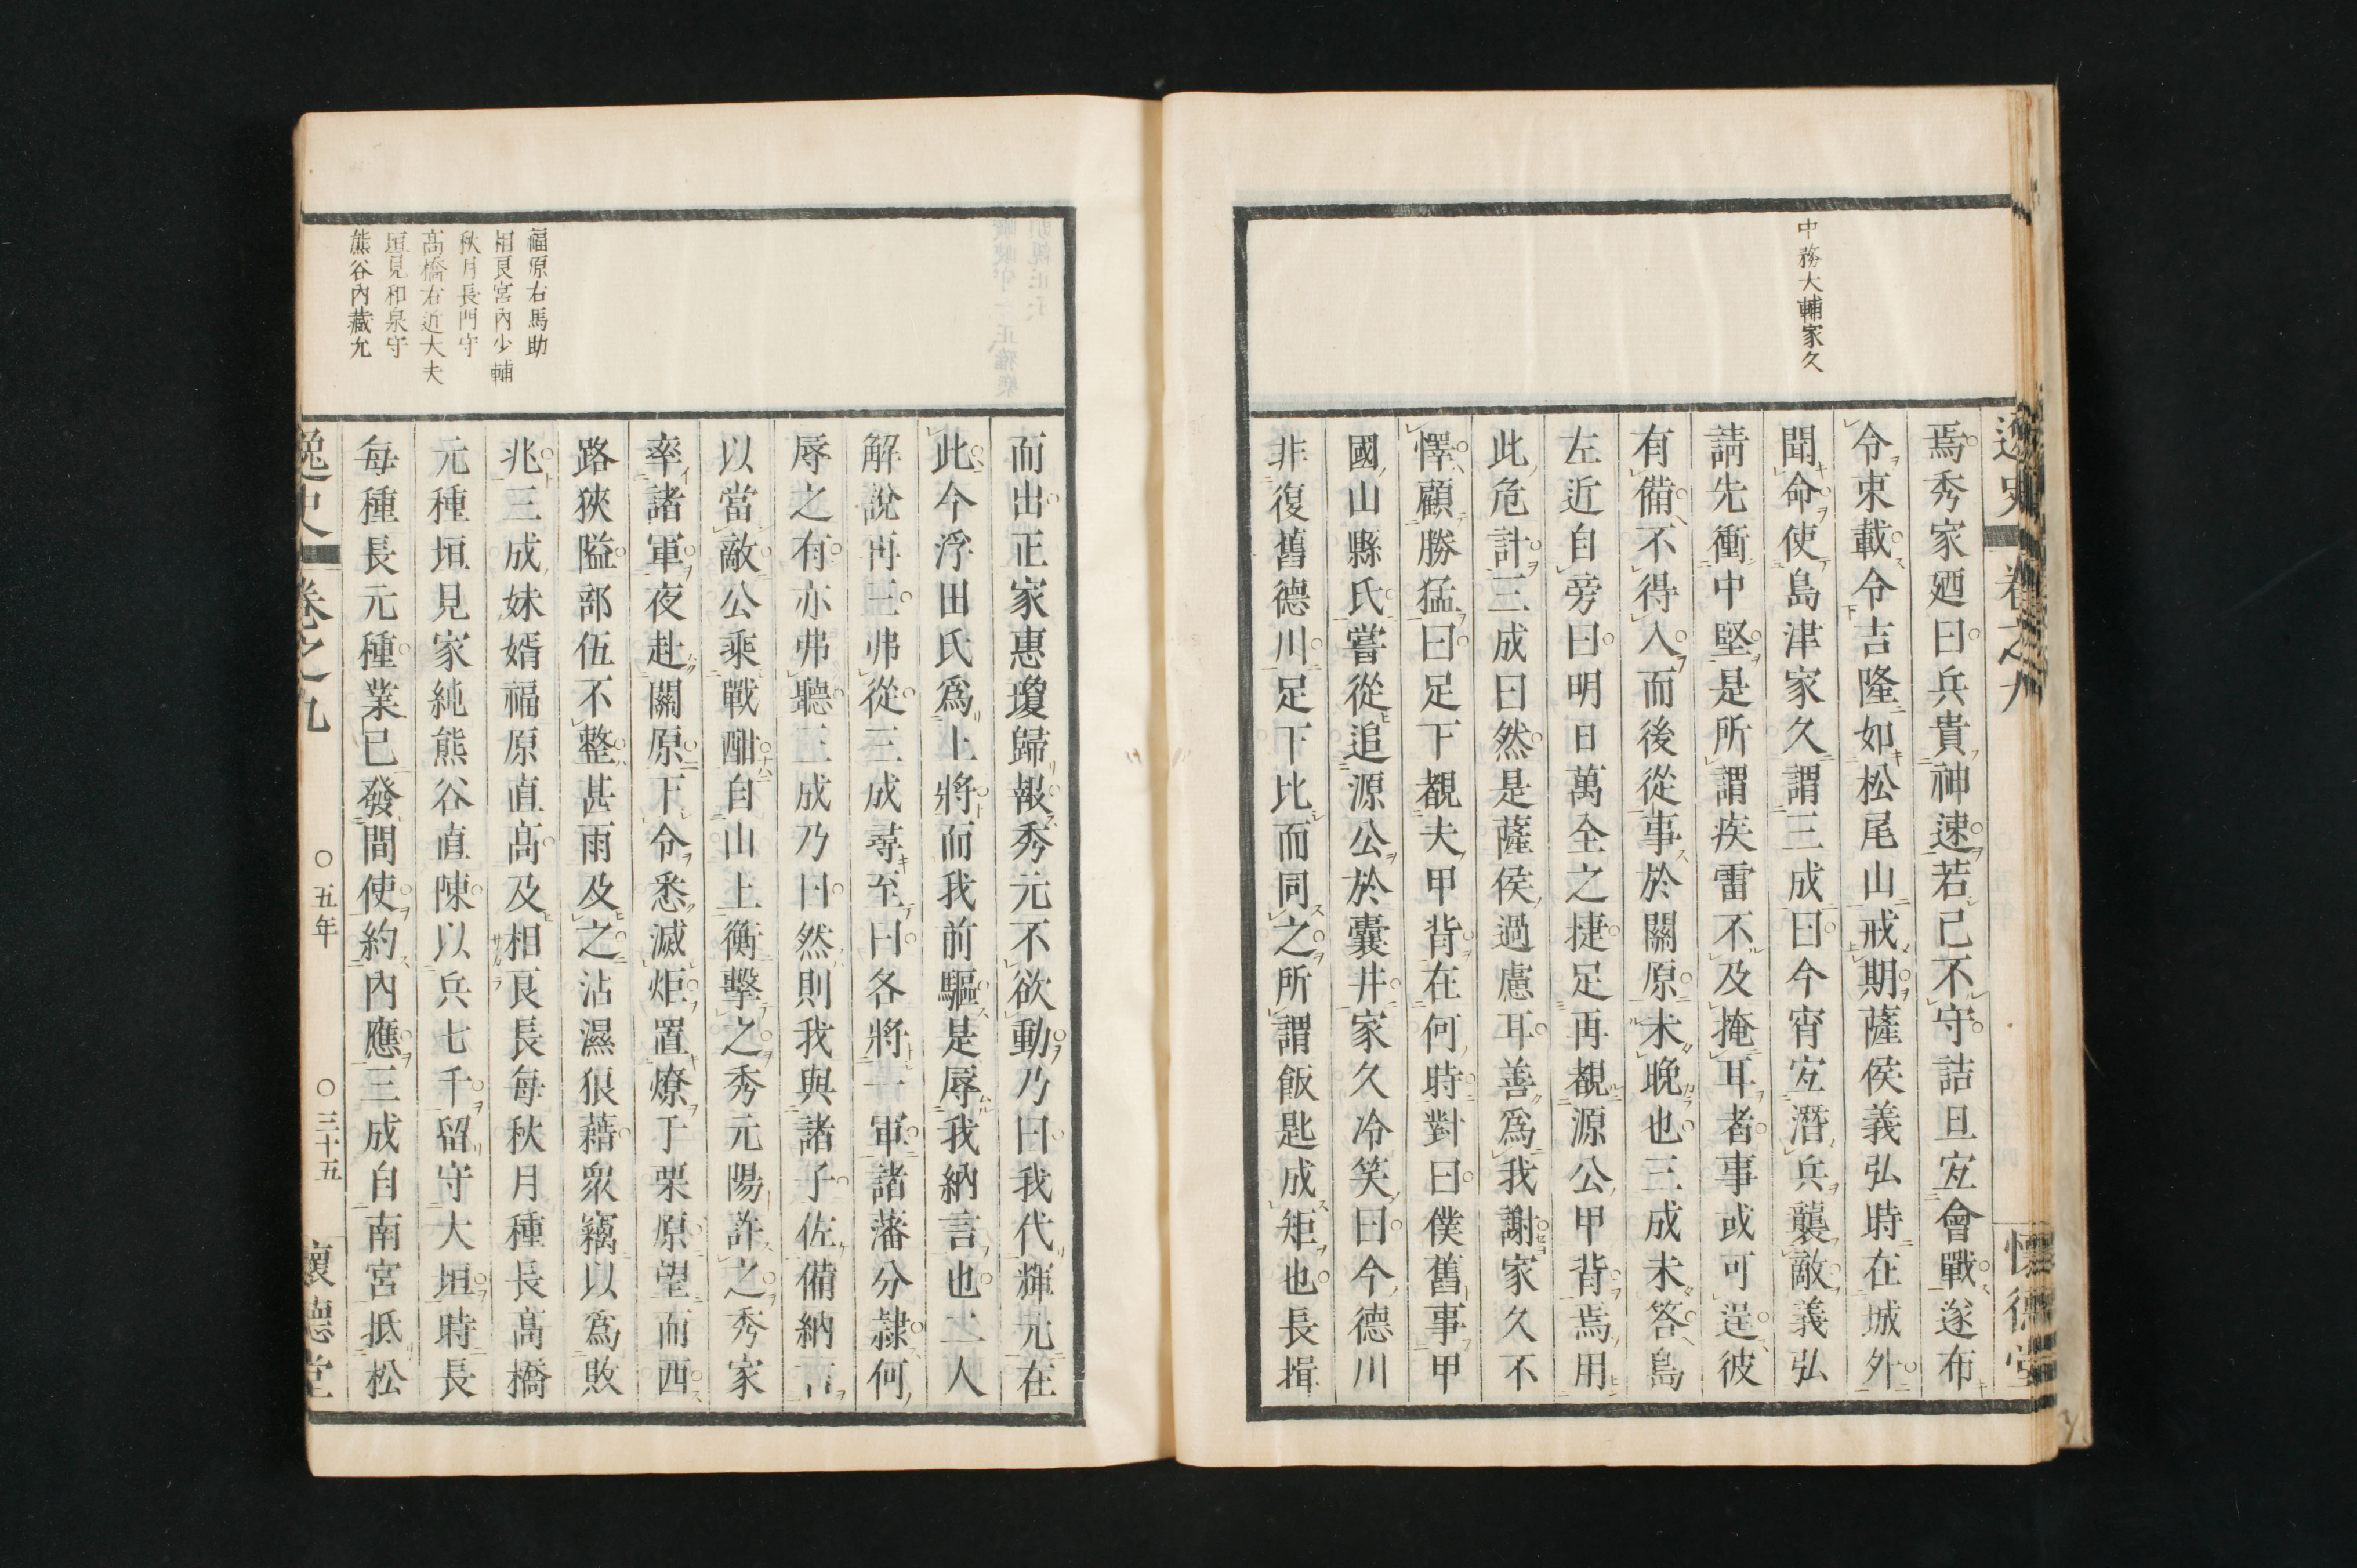 中務大輔家久
逸史 卷之九 懷德堂
焉秀家廼曰兵貴神速若己不守詰旦宐會戰遂布
令束載令吉隆如松尾山戒期薩侯義弘時在城外
聞命使島津家久謂三成曰今宵宐潛兵襲敵義弘
請先衝中堅是所謂疾雷不及掩耳者事或可逞彼
有備不得入而後從事於關原未晚也三成未答島
左近自旁曰明日萬全之捷足再覩源公甲背焉用
此危計三成曰然是薩侯過慮耳善爲我謝家久不
懌顧勝猛曰足下覩夫甲背在何時對曰僕舊事甲
國山縣氏嘗從追源公於囊井家久冷笑曰今德川
非復舊德川足下比而同之所謂飯匙成矩也長揖
而出正家惠瓊歸報秀元不欲動乃曰我代輝元在
此今浮田氏爲上將而我前驅是辱我納言也二人
解說再三弗從三成尋至曰各將一軍諸藩分隷何
辱之有亦弗聽三成乃曰然則我與諸子佐備納言
以當敵公乘戰酣自山上衡擊之秀元陽許之秀家
率諸軍夜赴關原下令悉滅炬置燎于栗原望而西
路狹隘部伍不整甚雨及之沾濕狼藉衆竊以爲敗
兆三成妹婿福原直高及相良長每秋月種長高橋
元種垣見家純熊谷直陳以兵七千留守大垣時長
每種長元種業已發間使約內應三成自南宮抵松
福原右馬助
相良宮內少輔
秋月長門守
高橋右近大夫
垣見和泉守
熊谷內藏允
逸史 卷之九 〇五年 〇三十五 懷德堂